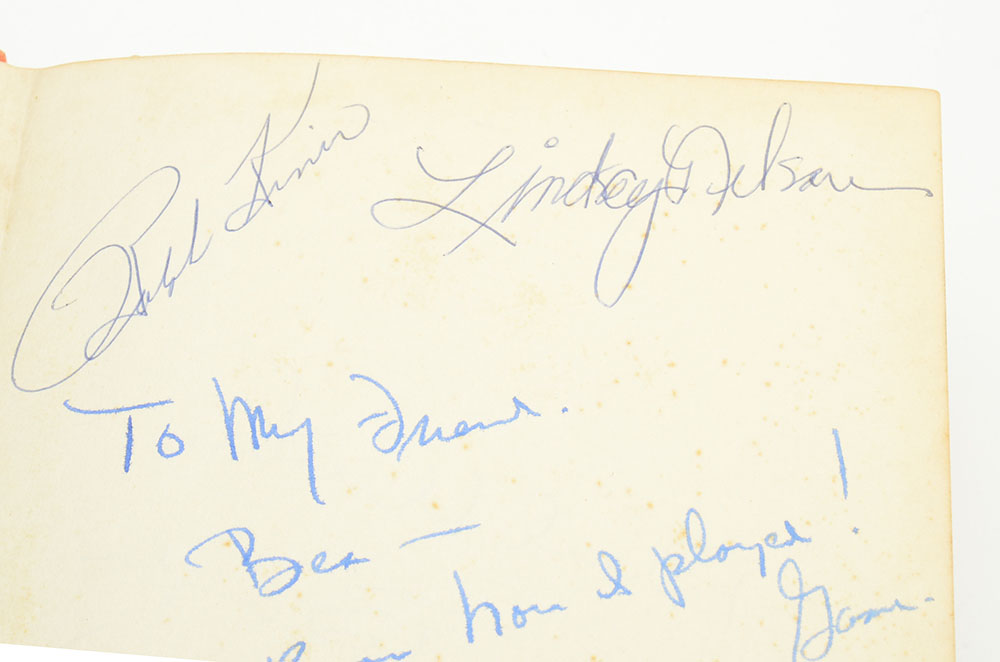 Ralph Kiner
Lindsey Nelson
To My Friend.
Ben —
how I played!
Game.